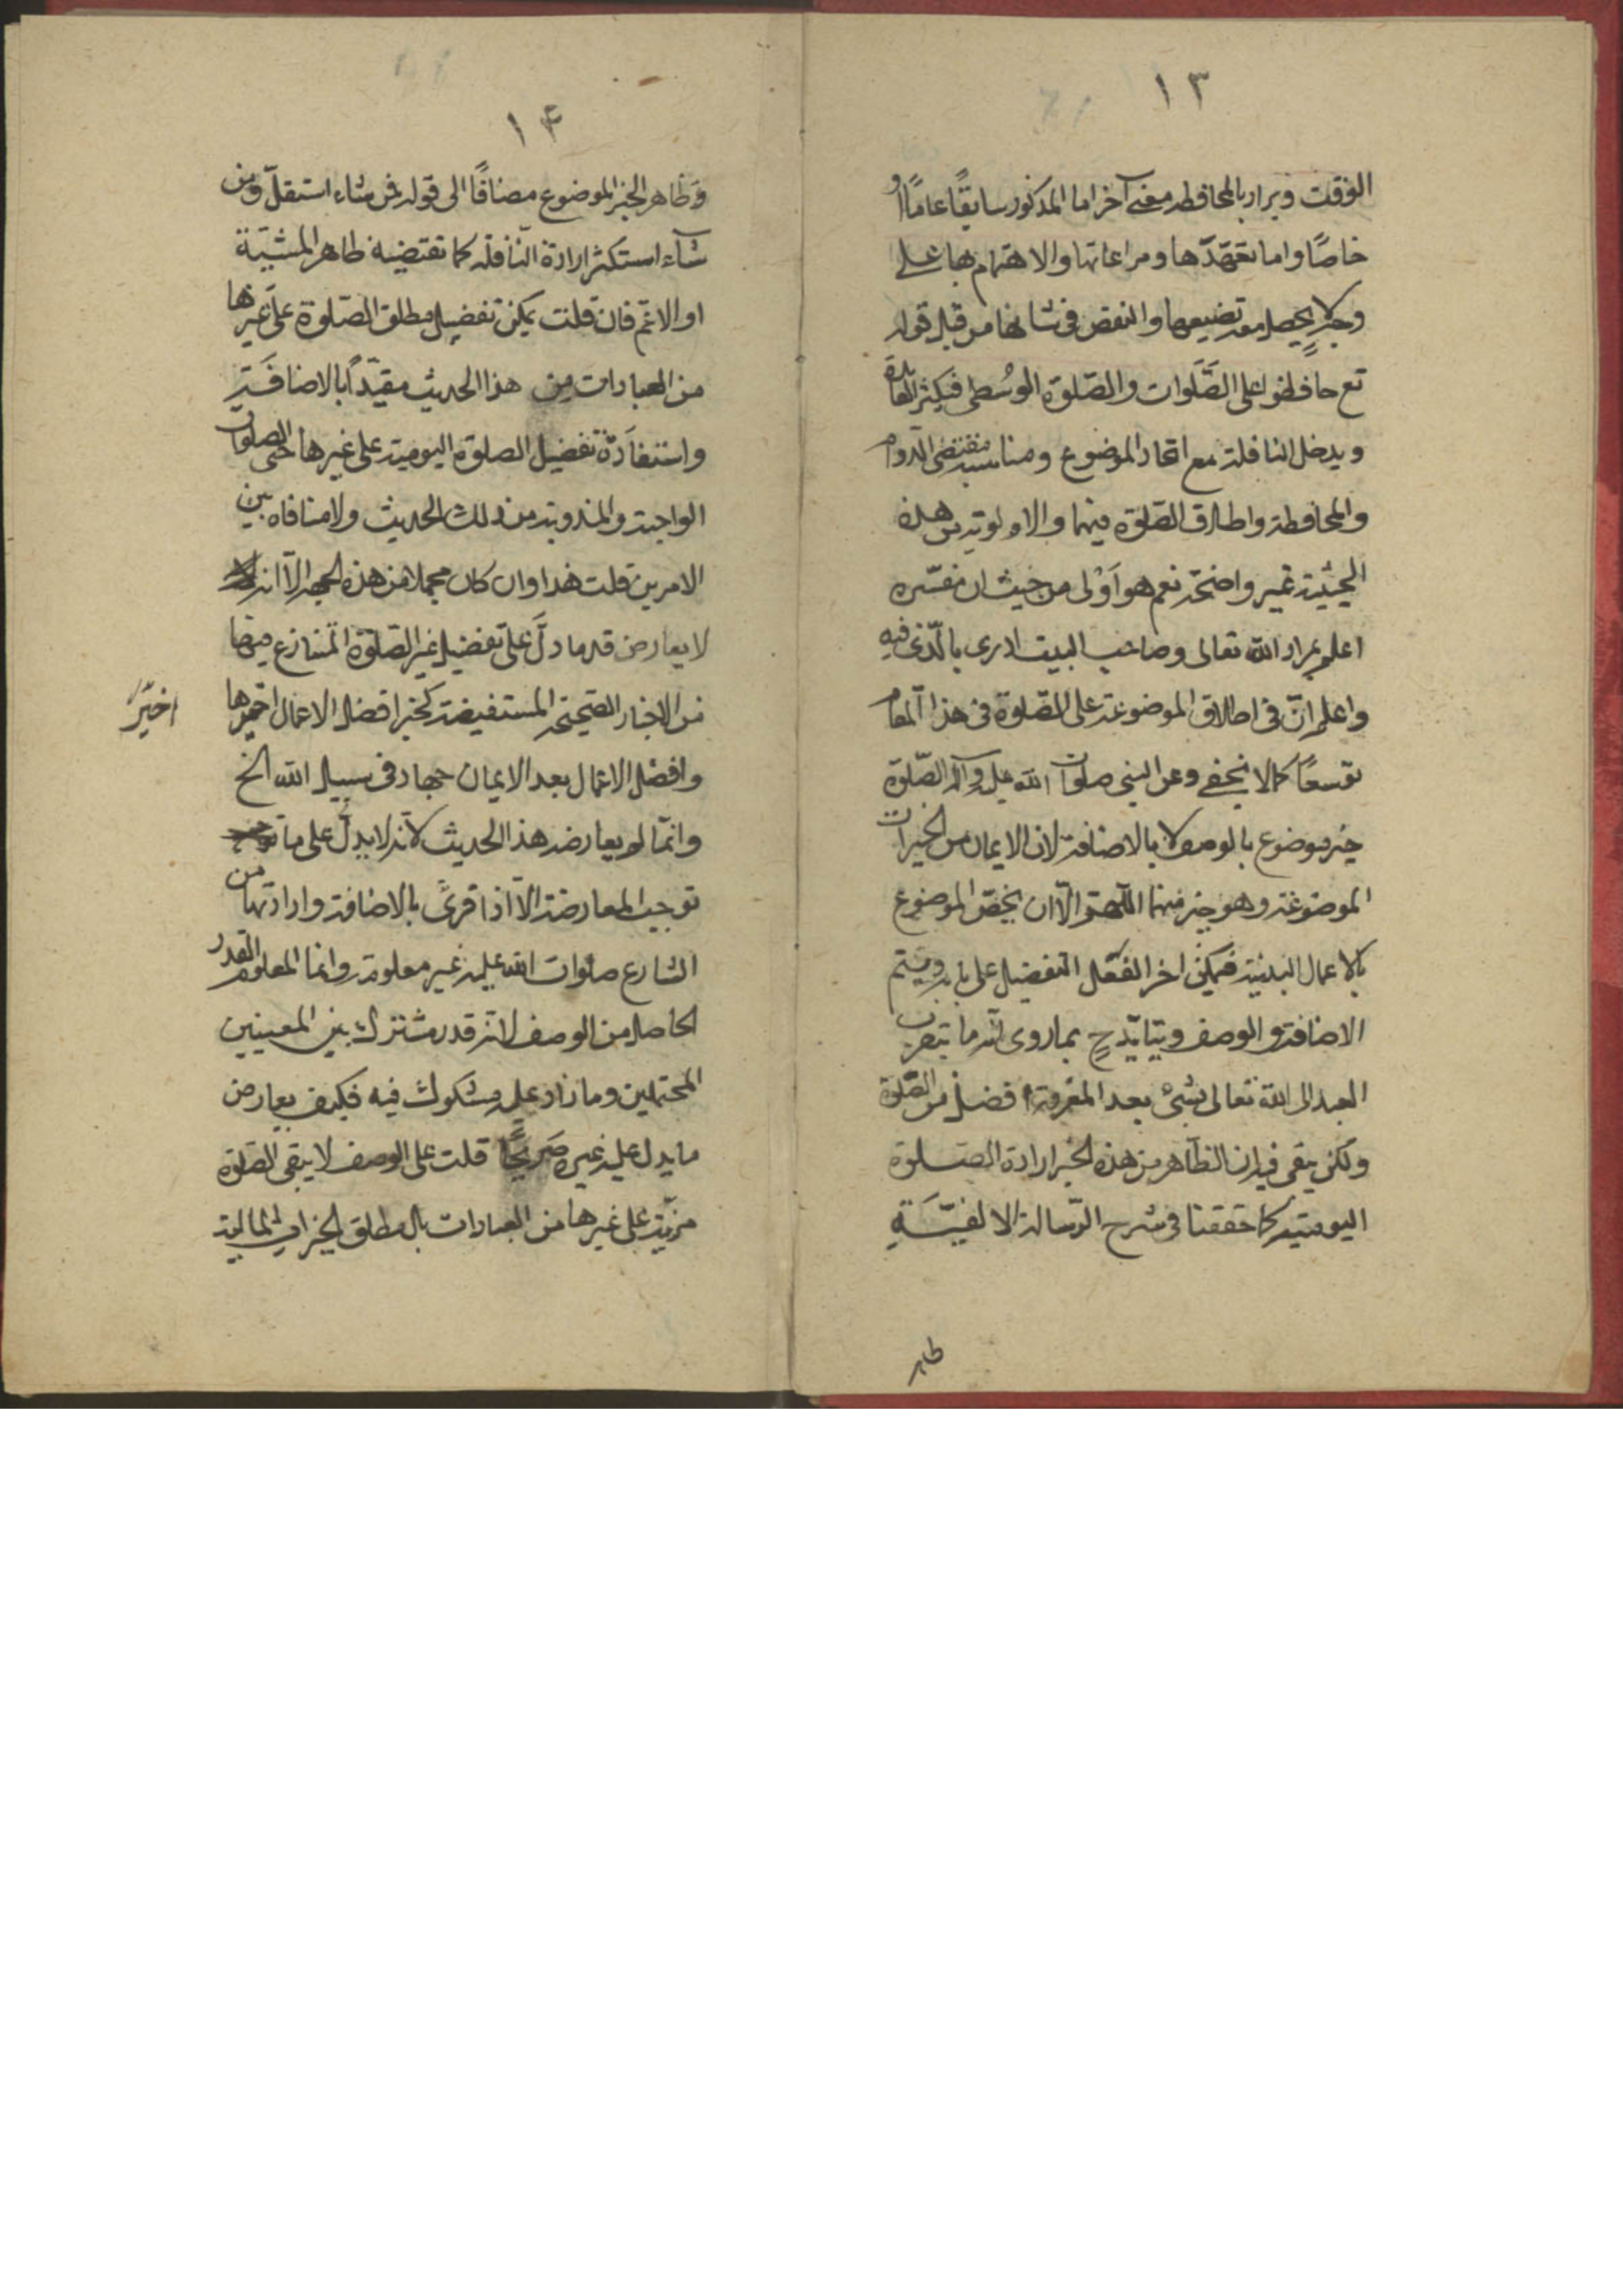 ١٣
الوقت ويراد بالمحافظه معنى آخر اما المذكور سابقًا عامًا او
خاصًا واما تعهّدها ومراعاتها والاهتمام بها على
وجه لا يحصل معه تضييعها والنقص فى شانها من قبل قوله
تع حافظوا على الصَّلَوات والصّلوة الوسُطى فيكثر الفائدة
ويدخل النافلة مع اتحاد الموضوع ومناسبة مقتضى الدّوام
والمحافظة واطلاق الصّلوة فيهما والاولوية من هذه
الحيثية غير واضحة نعم هو اَوْلى من حيث ان مفسّره
اعلم بمراد الله تعالى وصاحب البيت ادرى بالّذى فيه
واعلم انّ فى اطلاق الموضوعة على الصّلوة فى هذا المقام
توسعًا كما لا يخفى وعن النبى صلوات الله عليه وآله الصّلوة
خير موضوع بالوصف لا بالاضافة لان الايمان من الخيرات
الموضوعة وهو خير منها اللّهمّ الّا ان يخصّ الموضوع
بالاعمال البدنية فيمكن اخر التفضيل على بابه ويتم
الاضافة والوصف ويتايّد ح بما روى انّه ما يتقرب
العبد الى الله تعالى بشئ بعد المعرفة افضل من الصّلوة
ولكن يبقى فيه ان الظّاهر من هذه الخبر ارادة الصّلوة
اليومية كما حققنا فى شرح الرّسالة الالفيّةِ
ظاهر
١۴
وظاهر الخبر الموضوع مضافًا الى قوله فمن شاء استقلّ ومن
شآء استكثر ارادة النّافلة كما تقتضيه ظاهر المشيّة
او الاعم فان قلت يمكن تفضيل مطلق الصّلوة على غيرها
من العبادات من هذا الحديث مقيّدًا بالاضافَةِ
واستفادة تفضيل الصلوة اليومية على غيرها حتى الصلوات
الواجبة والمندوبة من ذلك الحديث ولا منافاه بين
الامرين قلت هذا وان كان محملا من هذه الجهة الّا انه
لا يعارض قدما دلَّ على تفضيل غير الصّلوة المتنازع فيها
من الاخبار الصّحيحة المستفيضة كخبر افضل الاعمال احمزها
وافضل الاعمال بعد الايمان جهاد فى سبيل الله الخ
وانّما لم يعارضه هذا الحديث لانّه لا يدلّ على ما
توجب المعارضة الّا اذا قرئ بالاضافة وارادتها من
الشارع صلوات الله عليه غير معلومة وانما المعلوم القدر
الحاصل من الوصف لانّه قدر مشترك بين المعنيين
المحتملين وما زاد عليه مشكوك فيه فكيف يعارض
ما يدل عليه غيره صَريحًا قلت على الوصف لا يبقى الصّلوة
مزيّة على غيرها من العبادات بل مطلق الخيرات المالية